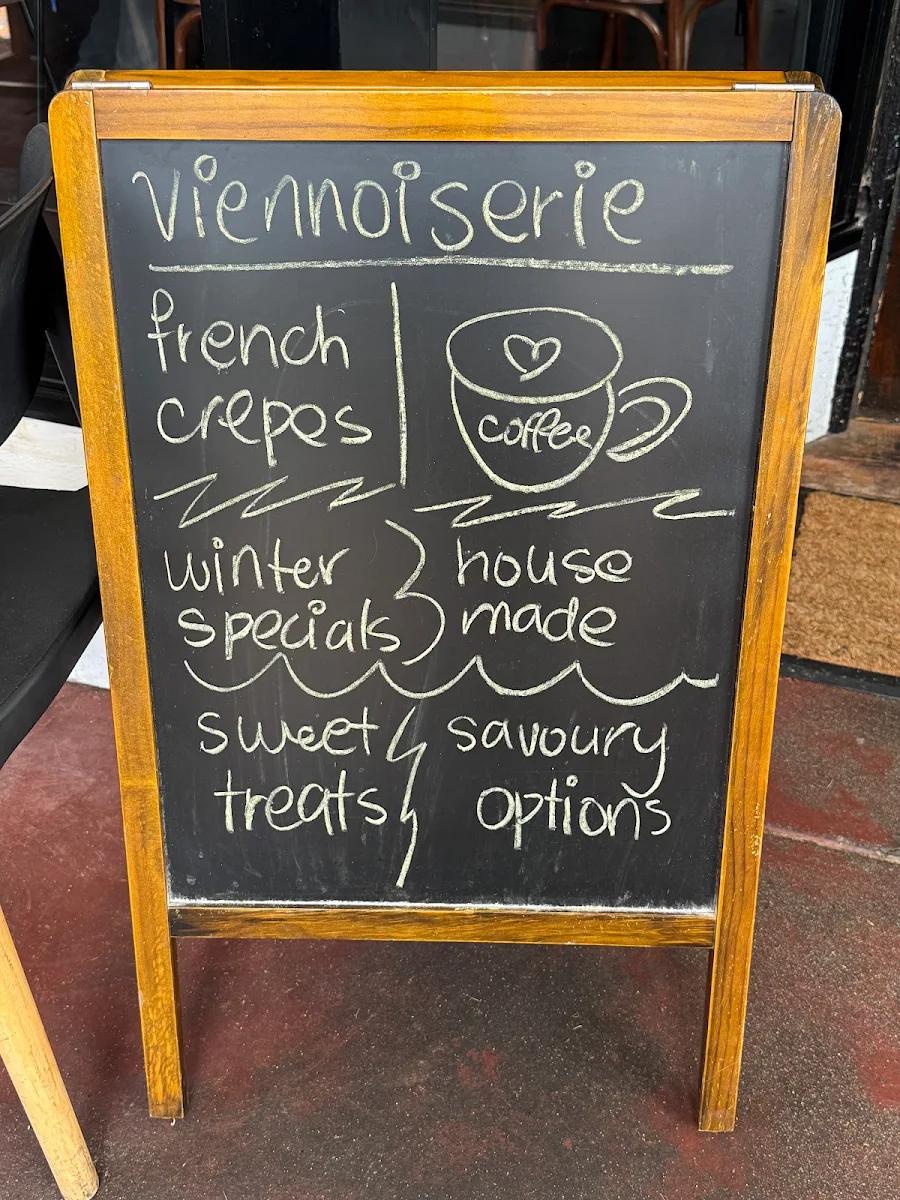 Viennoiserie
french
crepes
coffee
winter
specials
house
made
sweet
treats
savoury
options